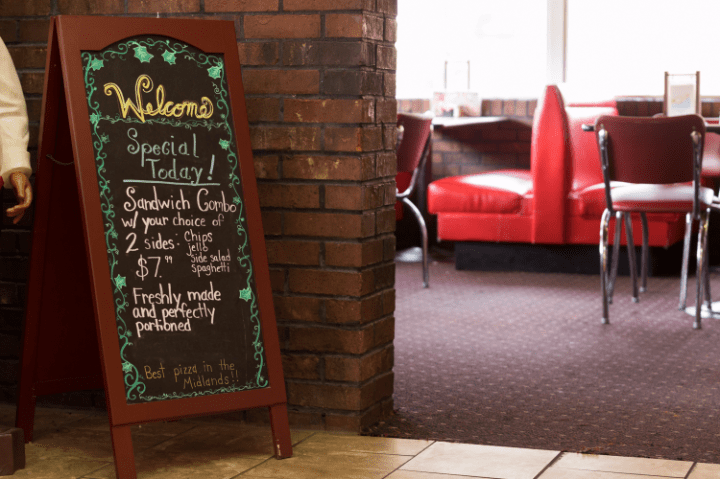 Welcome
Special
Today!
Sandwich Combo
w/ your choice of
2 sides- Chips
jello
$7.99 Side salad
Spaghetti
Freshly made
and perfectly
portioned
Best pizza in the
Midlands!!